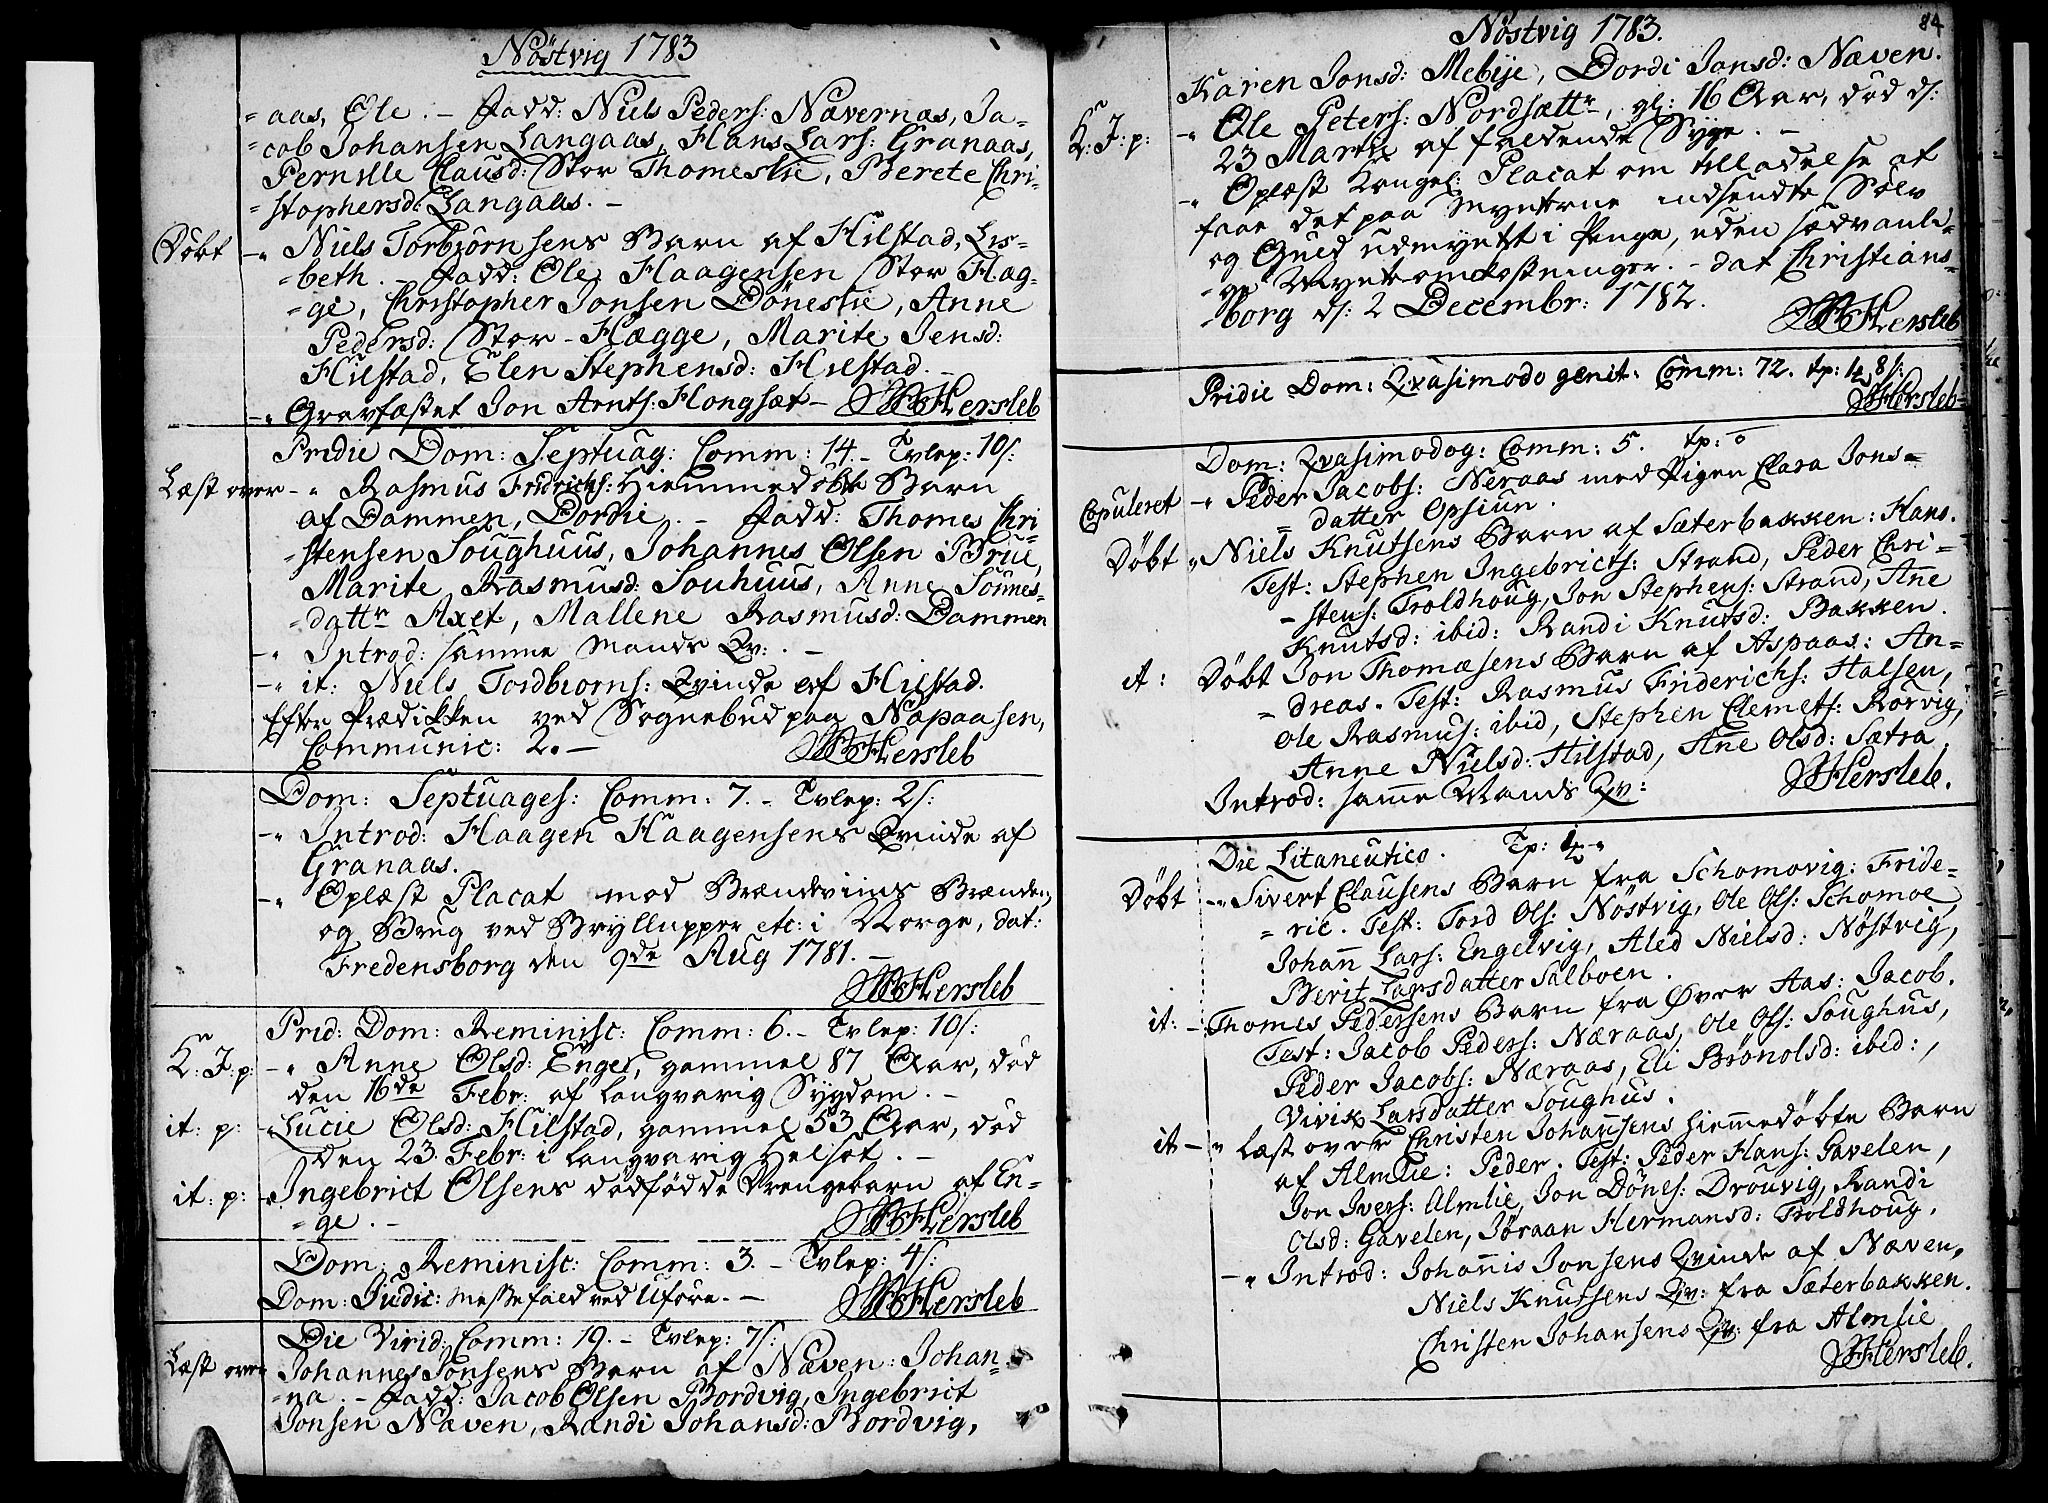 Nöstvig 1783
=aas, Ole. - Fadd: Niels Peders: Navernæs, Ja-
=cob Johansen Langaas, Hans Lars: Granaas,
Pernille Clausd: Stor Thomeslie, Berete Chri-
=stophersd: Langaas. -
Döbt -„ Niels Torbjörnsens Barn af Hilstad, Lis-
=beth. - Fadd: Ole Haagensen Stor Hag-
=ge, Christopher Jonsen Döneslie, Anne
Pedersd: Stor-Hægge, Marite Jensd:
Hilstad, Elen Stephensd: Hilstad. -
-„ Gravfæstet Jon Arnts: Hongsæt - Hersleb
Pridie Dom: Septuag: Comm: 14. - Tvlep: 10 s:
Læst over -„ Rasmus Fridrichs: Hiemmedöbte Barn
af Dammen, Dordie. - Fadd: Thomes Chri-
=stensen Soughuus, Johannes Olsen Brue,
Marite Rasmusd: Souhuus, Anne Sönnes-
=dattr Axet, Mallene Rasmusd: Dammen
-„ Introd: samme Mands Qv: . -
-„ it: Niels Tordbiorns: Qvinde af Hilstad.
Efter Prædikken ved Sognebud paa Napaasen,
Communic: 2. - Hersleb
Dom: Septuages: Comm: 7. - Tvlep: 2 s:
-„ Introd: Haagen Haagensens Qvinde af
Granaas.
-„ Oplæst Placat mod Brændeviins Brænden
og Brug ved Bryllupper etc: i Norge, dat:
Fredensborg den 9de Aug 1781. -
Hersleb
Prid: Dom: Reminisc: Comm: 6. - Tvlep: 10 s:
K: J: p: -„ Anne Olsd: Enge, gammel 87 Aar, död
den 16de Febr: af langvarig Sygdom. -
it: p: - Lucie Olsd: Hilstad, gammel 53 Aar, död
den 23. Febr: i langvarig Helsot. -
it: p: - Ingebrict Olsens dödfödde Drengebarn af En-
=ge. - Hersleb
Dom: Reminisc: Comm: 3. - Tvlep: 4 s:
Dom: Judic: Messefald ved Uföre. - Hersleb
Die Virid: Comm: 19. - Tvlep: 7 s:
Læst over Johannes Jonsens Barn af Næven: Johan-
=na. - Fadd: Jacob Olsen Bordvig, Ingebrict
Jonsen Næven, Randi Johansd: Bordvig,
84
Nöstvig 1783.
Karen Jonsd: Mebije, Dordi Jonsd: Næven.
K: J: p: -„ Ole Peters: Nordsættr, gl: 16 Aar, död d:
23 Martii af faldende Syge. -
-„ Oplæst Kongel: Placat om tilladelse at
faae det paa Mynterne indsendte Sölv
og Guld udmyntet i Penge, uden sædvanli-
=ge Myntomkostninger. - dat Christians-
=borg d: 2 Decembr: 1782.
Hersleb
Pridie Dom: Qvasimodo genit: Comm: 72. tp: 8 s:
Hersleb
Dom: Qvasimodog: Comm: 5. tp: 0
Copuleret -„ Peder Jacobs: Neraas med Pigen Clara Jons-
=datter Opsiun.
Döbt „ Niels Knutsens Barn af Sæterbakken: Hans.
Test: Stephen Ingebricts: Strand, Peder Chri-
-stens: Troldhoug, Jon Stephens: Strand, Ane
Knutsd: ibid: Randi Knutsd: Bakken.
it: Döbt Jon Thomæsens Barn af Aspaas: An-
=dreas. Test: Rasmus Friderichs: Halsen,
Ole Rasmus: ibid, Stephen Clemets: Rörvig,
Anne Nielsd: Hilstad, Ane Olsd: Sætra.
Introd: samme Mands Qv: Hersleb.
Die Litaneutico. Tp:
Döbt -„ Sivert Clausens Barn fra Schomovig: Fride-
=ric. Test: Tord Ols: Nöstvig, Ole Ols: Schomoe,
Johann Lars: Engelvig, Aled Nielsd: Nöstvig,
Berit Larsdatter Salboen.
it: - Thomes Pedersens Barn fra Øver Aas: Jacob.
Test: Jacob Peders: Næraas, Ole Ols: Soughus,
Peder Jacobs: Næraas, Eli Brönolsd: ibid:,
Vivik Larsdatter Soughus.
it - „ Læst over Christen Johannsens hiemmedöbte Barn
af Almlie: Peder. Test: Peder Hans: Gavelen,
Jon Ivers: Almlie, Jon Dönes: Drouvig, Randi
Olsd: Gavelen, Jöraan Hermansd: Troldhoug.
-„ Introd: Johannis Jonsens Qvinde af Næven.
Niels Knutsens Qv: fra Sæterbakken.
Christen Johansens Qv: fra Almlie
Hersleb.